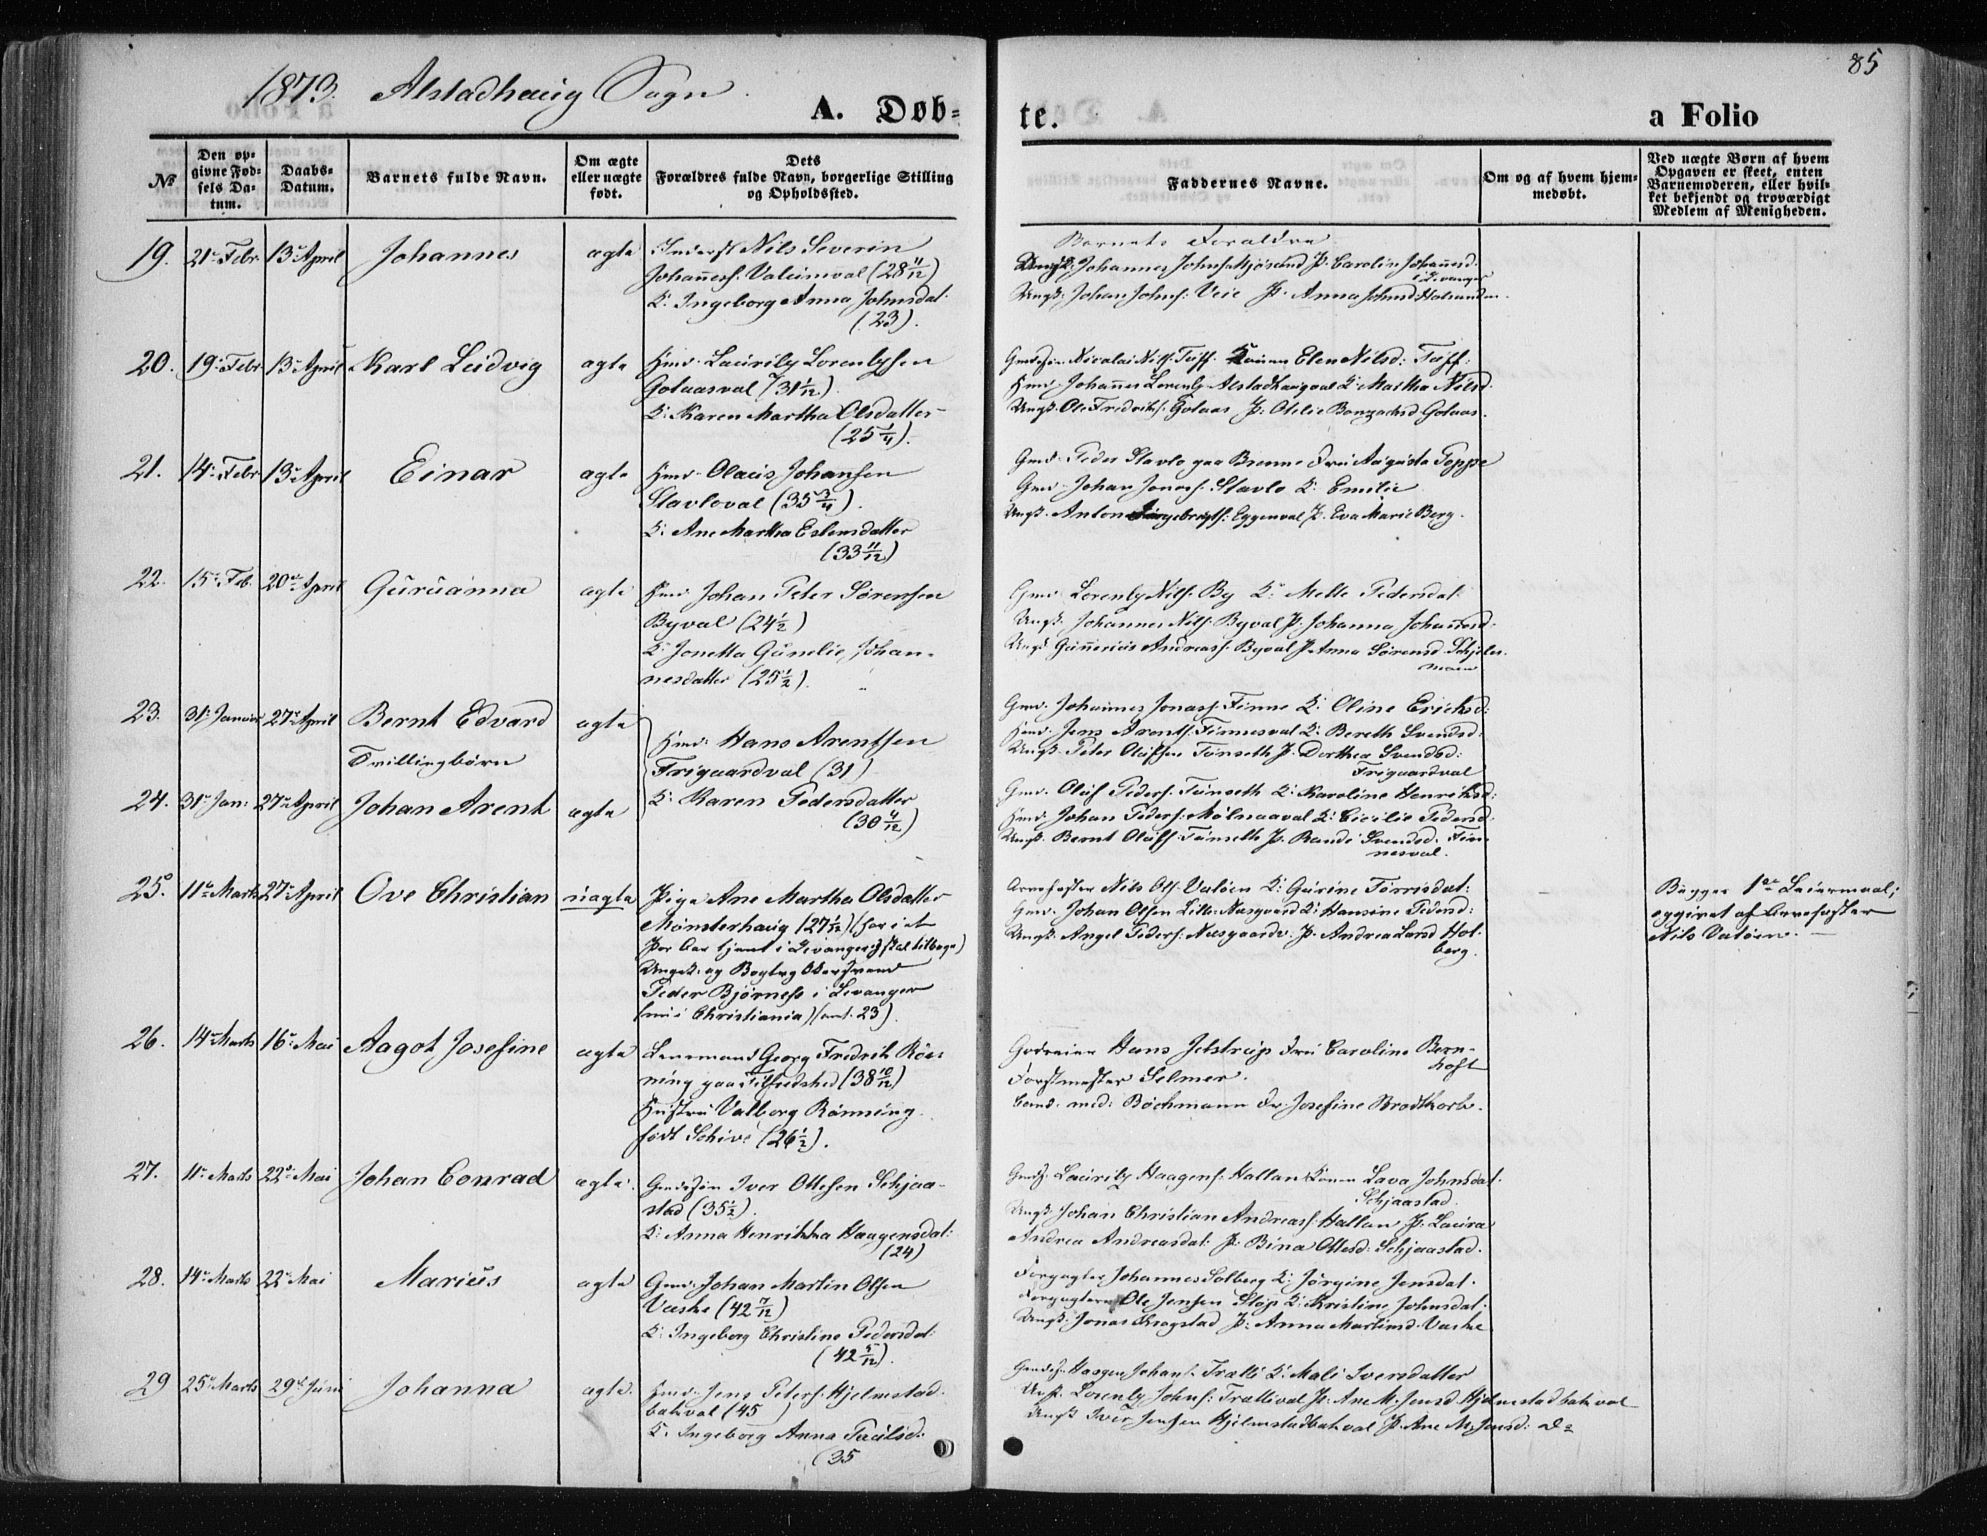 85
1873. Alstadhaug Sogn.
A. Døb=
te.
a Folio
№
Den op=
givne Fød=
sels Da=
tum.
Daabs=
Datum.
Barnets fulde Navn.
Om ægte
eller uægte
født.
Dets
Forældres fulde Navn, borgerlige Stilling
og Opholdssted.
Faddernes Navne.
Om og af hvem hjem=
medøbt.
Ved uægte Børn af hvem
Opgaven er skeet, enten
Barnemoderen, eller hvil=
ket bekjendt og troværdigt
Medlem af Menigheden.
19. 21 Febr 13 April Johannes ægte
Nils Severin
Johannesf. (28 11/12)
K: Ingeborg Anna Johnsdat:
(23).
Barnets Forældre
Ungk: Johannes Johns. P: Carolin Johannesd.
Levanger
Ungk: Johan Johns: Veie P: Anna Johnsd
20. 19 Febr 13 April Karl Ludvig ægte
Hmd: Lauritz Lorentzsen
Golaasval (31 1/12)
K: Karen Martha Olsdatter
(25 1/4).
Nicolai Nils: Elen Nilsd:
Hmd: Johannes Lorentz Alstadhaugval K: Martha Nilsd:
Ungk: Ole Fredriks: Golaas P: Golaas.
21. 14 Febr 13 April Einar ægte
Hmd: Olaus Johansen
Stavloval (35 3/4).
K: Ane Martha Estensdatter
(33 11/12)
Gmd: Peder Stavlo paa Brenne Fru Augusta Poppe
Gmd: Johan Stavlo K: Emilie
Ungk: Anton Eggenval P: Eva Marie Berg.
22. 15 Feb. 20 April Guruanna ægte
Hmd: Johan Peter Sørensen
Byval (24 1/2)
K: Jonetta Gunelie Johan-
nesdatter (25 1/2).
Gmd: Lorentz Nils: By K: Mette Pedersdat:
Ungk: Johannes Nils: Byval P: Johanna Johannesd:
Ungk: Gunerius Andreass: Byval P: Anna Sørensd.
23. 31 Januar 27 April Bernt Edvard ægte
Tvillingbørn
Hmd: Hans Arentsen
Frigaardval (31)
K: Karen Pedersdatter
(30 4/12)
Gmd: Johannes Jonass: Finne K: Oline Ericksd:
Hmd: Jens Arents: Finnesval K: Bereth Svendsd:
Ungk: Peter Olufsen Tønseth P: Dorthea Svendsd:
Frigaardval
24. 31 Jan: 27 April Johan Arent ægte
Gmd: Oluf Peders: Tønseth K: Karoline Henriksd:
Hmd: Johan Peders: Mølnaaval K: Cicilie Pedersd:
Ungk: Bernt Olufs: Tønseth P: Randi Svendsd. Fin-
nesval.
25. 11 Marts 27 April Ove Christian uægte
Pige Ane Martha Olsdatter
Mønsterhaug (27 1/2) (for i et
Par Aar tjent i Levanger
Ungk: og
Peder Bjørness i Levanger
(nu i Christiania) (ant. 23).
Nils Ols: Valøen K: Gurine
Gmd: Johan Olsen K: Hansine Pedersd:
Ungk: Angel Peders: Næsgaardv: P: Andrea Larsd Hol-
berg.
Begges 1ste Leiermaal;
opgivet af
Nils Valøen.
26. 14 Marts 16 Mai Aagot Josefine ægte
Lensmand Georg Fredrik Røn-
ning paa (38 10/12)
Hustru Valborg Rønning
født Schive (26 1/2).
Godseier Hans Jelstrup Fru Caroline Bern-
hoft
Forstmester Selmer.
Cand. med: Bachmann Fr: Josefine Brodtkorb.
27. 11 Marts 22 Mai Johan Conrad ægte
Iver Ottesen Schjaa-
stad (35 1/2).
K: Anna Henrikka Haagensdat:
(24)
Lauritz Haagens: Hallan Konen Lava Johnsdat.
Schjaastad
Ungk: Johan Christian Andreass: Hallan P: Laura
Andrea Andreasdat: P: Bina Ottesd: Schjaastad.
28. 14 Marts 22 Mai Marius ægte
Gmd: Johan Martin Olsen
Vaske (42 7/12)
K: Ingeborg Christine Pedersdat:
(42 5/12).
Forpagter Johannes Solberg K: Jørgine Jensdat.
Forpagteren Ole Jensen Støp K: Kristine Johnsdat:
Ungk: Jonas Kragstad P: Anna Martinsd. Vaske
29 25 Marts 29 Juni Johanna ægte.
Hmd: Jens Peters: Hjelmstad-
bakval (45)
K: Ingeborg Anna
(35
Haagen Johans: K: Mali Iversdatter
Ungk: Lorentz Johns: P: Ane M. Jensd Hjelmstadbakval
Ungk: Iver Jensen Hjelmstadbakval P: Ane M. Jensd: Do